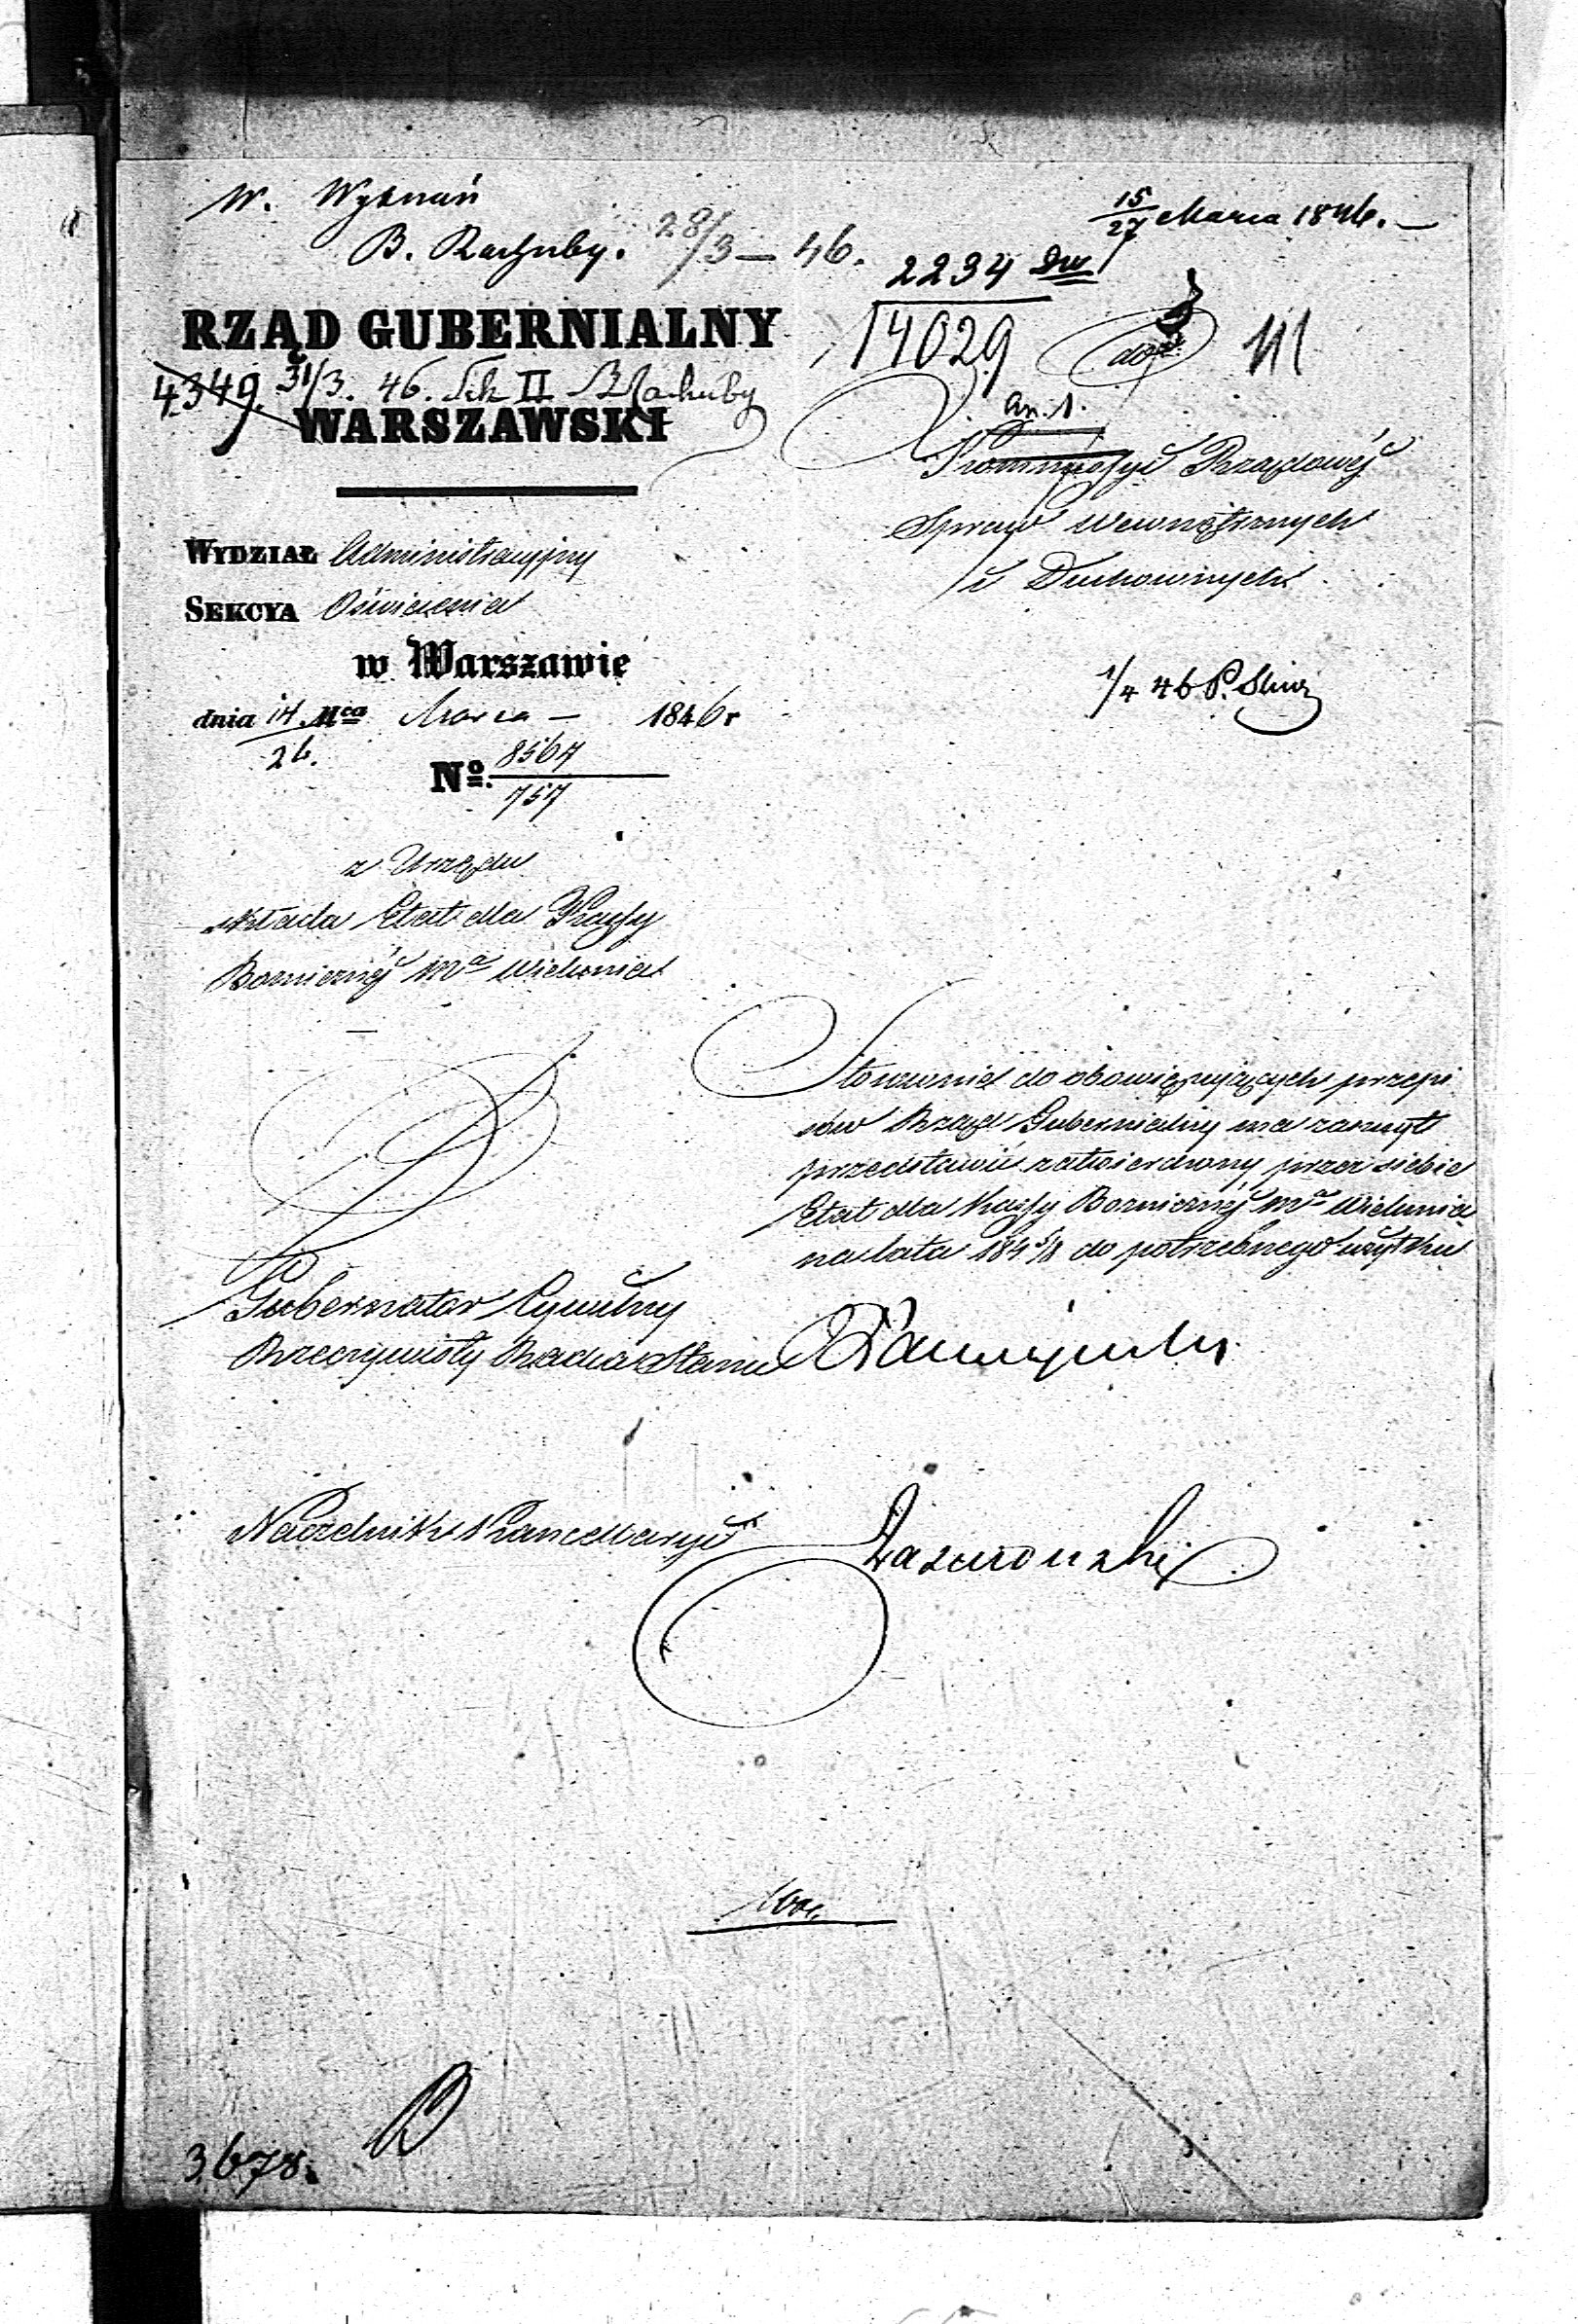 W. Wyznań
B. Rachuby. 28/3 – 46.
15/27 Marca 1846. –
2234
14029
RZĄD GUBERNIALNY
4349. 31/3. 46. Sek II B Rachuby
WARSZAWSKI
an. 1.
Kommissyi Rządowéj
Spraw Wewnętrznych
i Duchownych
WYDZIAŁ Administracyjny
SEKCYA Oświecenia
w Warszawie
dnia 14/26. Mca Marca – 1846 r
1/4 46 P.
No. 8567/757
z Urzędu
składa Etat dla Kassy
Bożnicznéj Ma Wielunia
Stosownie do obowięzujących przepi
sów Rząd Gubernialny ma zaszczyt
przedstawić zatwierdzony przez siebie
Etat dla Kassy Bożnicznéj Ma Wielunia
na lata 1845/8 do potrzebnego użytku
Gubernator Cywilny
Rzeczywisty Radca Stanu
Naczelnik Kancellaryi
3678.